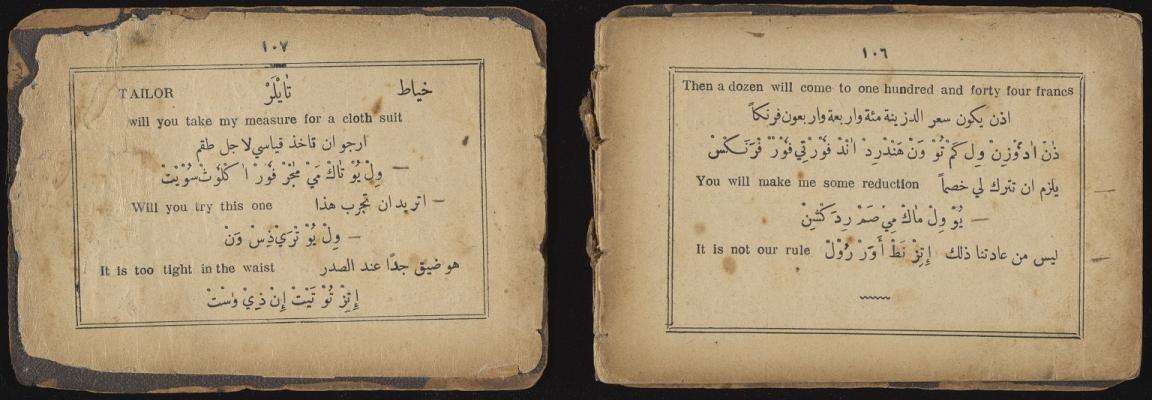 ١٠٦
Then a dozen will come to one hundred and forty four francs
اذن يكون سعر الدزينة مئة واربعة واربعون فرنكاً
ذَنْ اَدَوْزِنْ وِل كَمْ تُوْ وَنْ هَنْدْرِدْ اَنْدْ فَوْرْتِي فَوْرْ فْرَنْكْسْ
You will make me some reduction يلزم ان تترك لي خصماً
— يُوْ وِلْ مَاكْ مِيْ صَمْ رِدَكْشِنْ
It is not our rule إِتِزْ نَطْ أَوَرْ رُوْلْ ليس من عادتنا ذلك
١٠٧
TAILOR تَايْلَرْ خياط
will you take my measure for a cloth suit
ارجو ان تاخذ قياسي لاجل طقم
— وِلْ يُوْ تَاكْ مَيْ مَجْرْ فَوْرْ اَ كْلَوْثْ سُوْيْتْ
Will you try this one — اتريد ان تجرب هذا
— وِلْ يُوْ تْرَيْ ذِسْ وَنْ
It is too tight in the waist هو ضيق جدًا عند الصدر
إِتِزْ تُوْ تَيْتْ إِنْ ذِيْ وَسْتْ